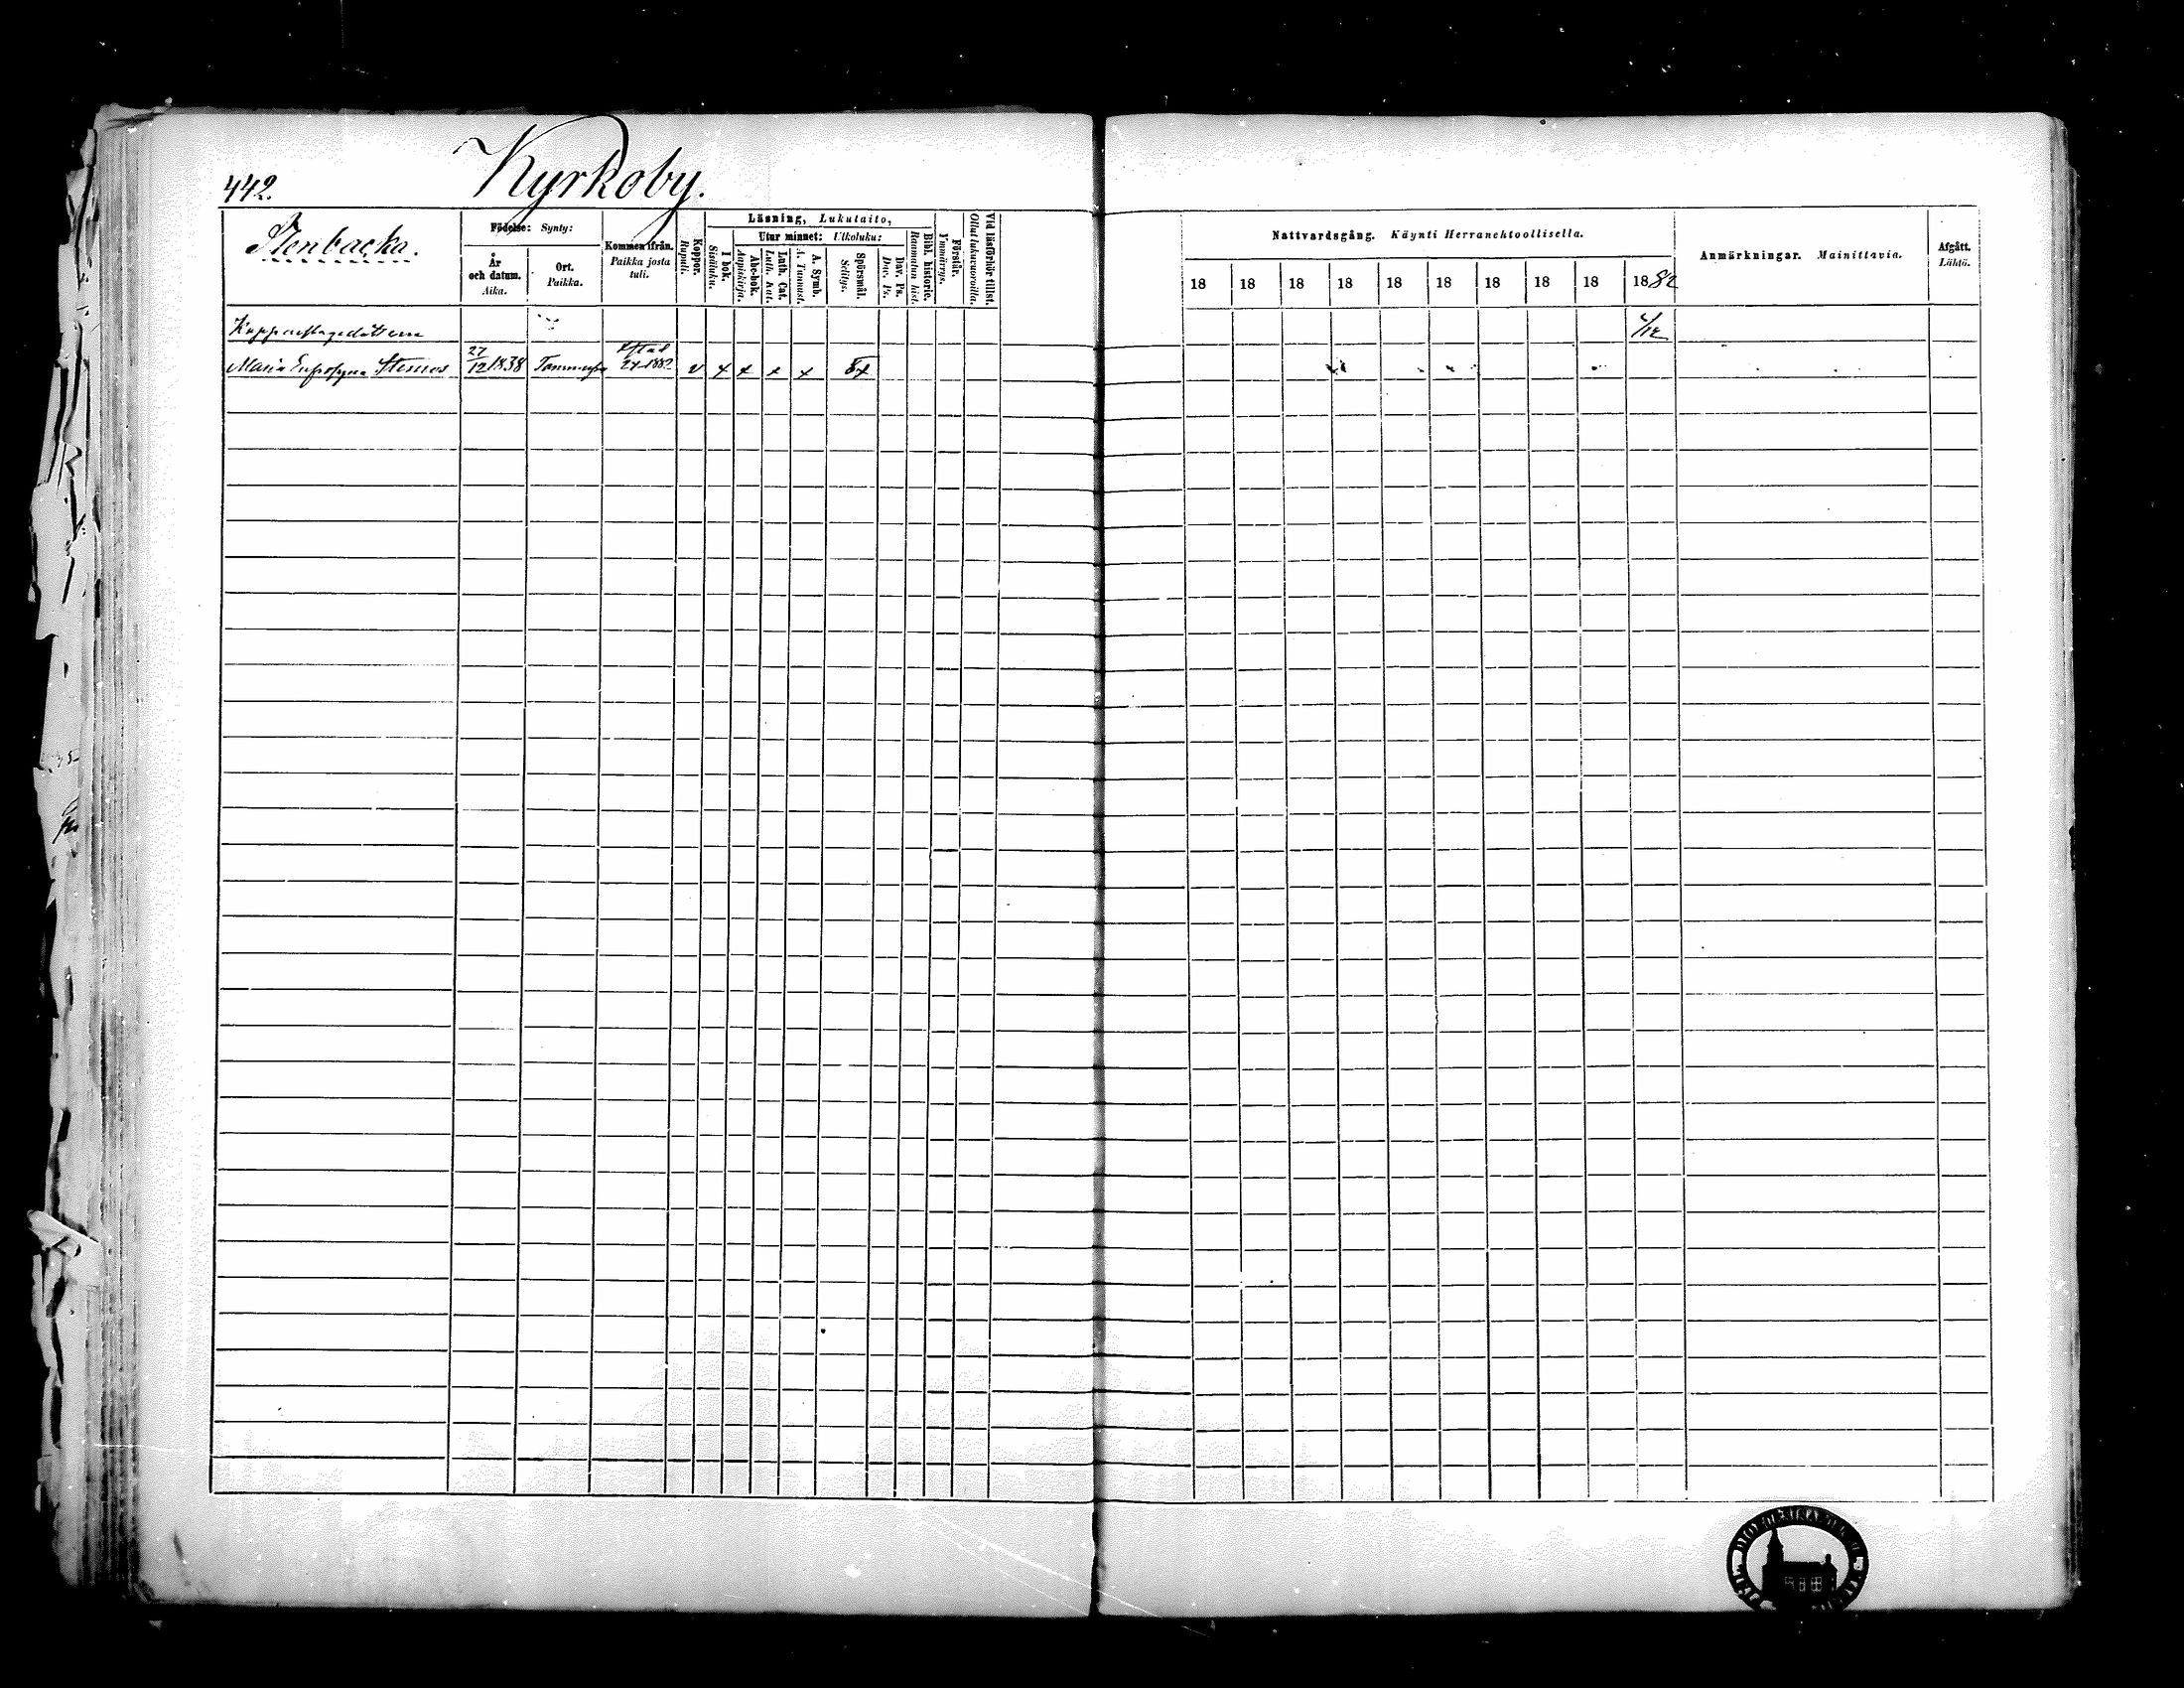 442.
Kyrkoby.
Stenbacka.
Födelse: Synty:
År och datum. Aika.
Ort. Paikka.
Kommen ifrån. Paikka josta tuli.
Koppor. Rupuli.
Läsning, Lukutaito,
I bok. Sisäluku.
Utur minnet: Ulkoluku:
Abc-bok. Aapiskirja.
Luth. Cat. Luth. Kat.
A. Symb. A. Tunnust.
Spörsmål. Selitys.
Dav. Ps. Dav. Ps.
Bibl. historie. Raamatun hist.
Förstår. Ymmärrys.
Vid läsförhör tillst. Ollut lukuvuoroilla.
Nattvardsgång. Käynti Herranehtoollisella.
18 18 18 18 18 18 18 18 18 1882
Anmärkningar. Mainittavia.
Afgått. Lähtö.
Maria 27/12 1838 1882